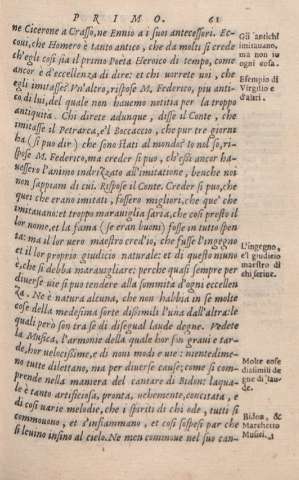 PRIMO. 61
ne Cicerone a Crasso, ne Ennio a i suoi antecessori. Ec-
coui, che Homero è tanto antico, che da molti si crede
ch'egli cosi sia il primo Poeta Heroico di tempo, come
ancor è d'eccellenza di dire: et chi uorrete uoi, che
egli imitasse? Vn'altro, rispose M. Federico, piu anti-
co di lui, del quale non hauemo notitia per la troppo
antiquità. Chi direte adunque, disse il Conte, che
imitasse il Petrarca, e'l Boccaccio, che pur tre giorni
ha (si puo dir) che sono stati al mondo? Io nol so, ri-
spose M. Federico, ma creder si puo, ch'essi ancor ha-
uessero l'animo indrizzato all'imitatione, benche noi
non sappiam di cui. Rispose il Conte. Creder si puo, che
quei che erano imitati, fossero migliori, che que' che
imitauano: et troppo marauiglia saria, che cosi presto il
lor nome, et la fama (se eran buoni) fosse in tutto spen-
ta: ma il lor uero maestro cred'io, che fusse l'ingegno
et il lor proprio giudicio naturale: et di questo niuno
è, che si debba marauigliare: perche quasi sempre per
diuerse uie si puo tendere alla sommità d'ogni eccellen
za. Ne è natura alcuna, che non habbia in se molte
cose della medesima sorte dissimili l'una dall'altra: le
quali però son tra se di disegual laude degne. Vedete
la Musica, l'armonie della quale hor son graui e tar-
de, hor velocissime, e di noui modi e uie: nientedime-
no tutte dilettano, ma per diuerse cause; come si com-
prende nella maniera del cantare di Bidon: laqua-
le è tanto artificiosa, pronta, uehemente, concitata, e
di cosi uarie melodie, che i spiriti di chi ode, tutti si
commouono, et s'infiammano, et cosi sospesi par che
si leuino insino al cielo. Ne men commoue nel suo can-
Gli antichi
imitauano,
ma non in
ogni cosa.
Esempio di
Virgilio e
d'altri.
L'ingegno,
e'l giudicio
maestro di
chi scriue.
Molte cose
dissimili de
gne di lau-
de.
Bidon, &
Marchetto
Musici.